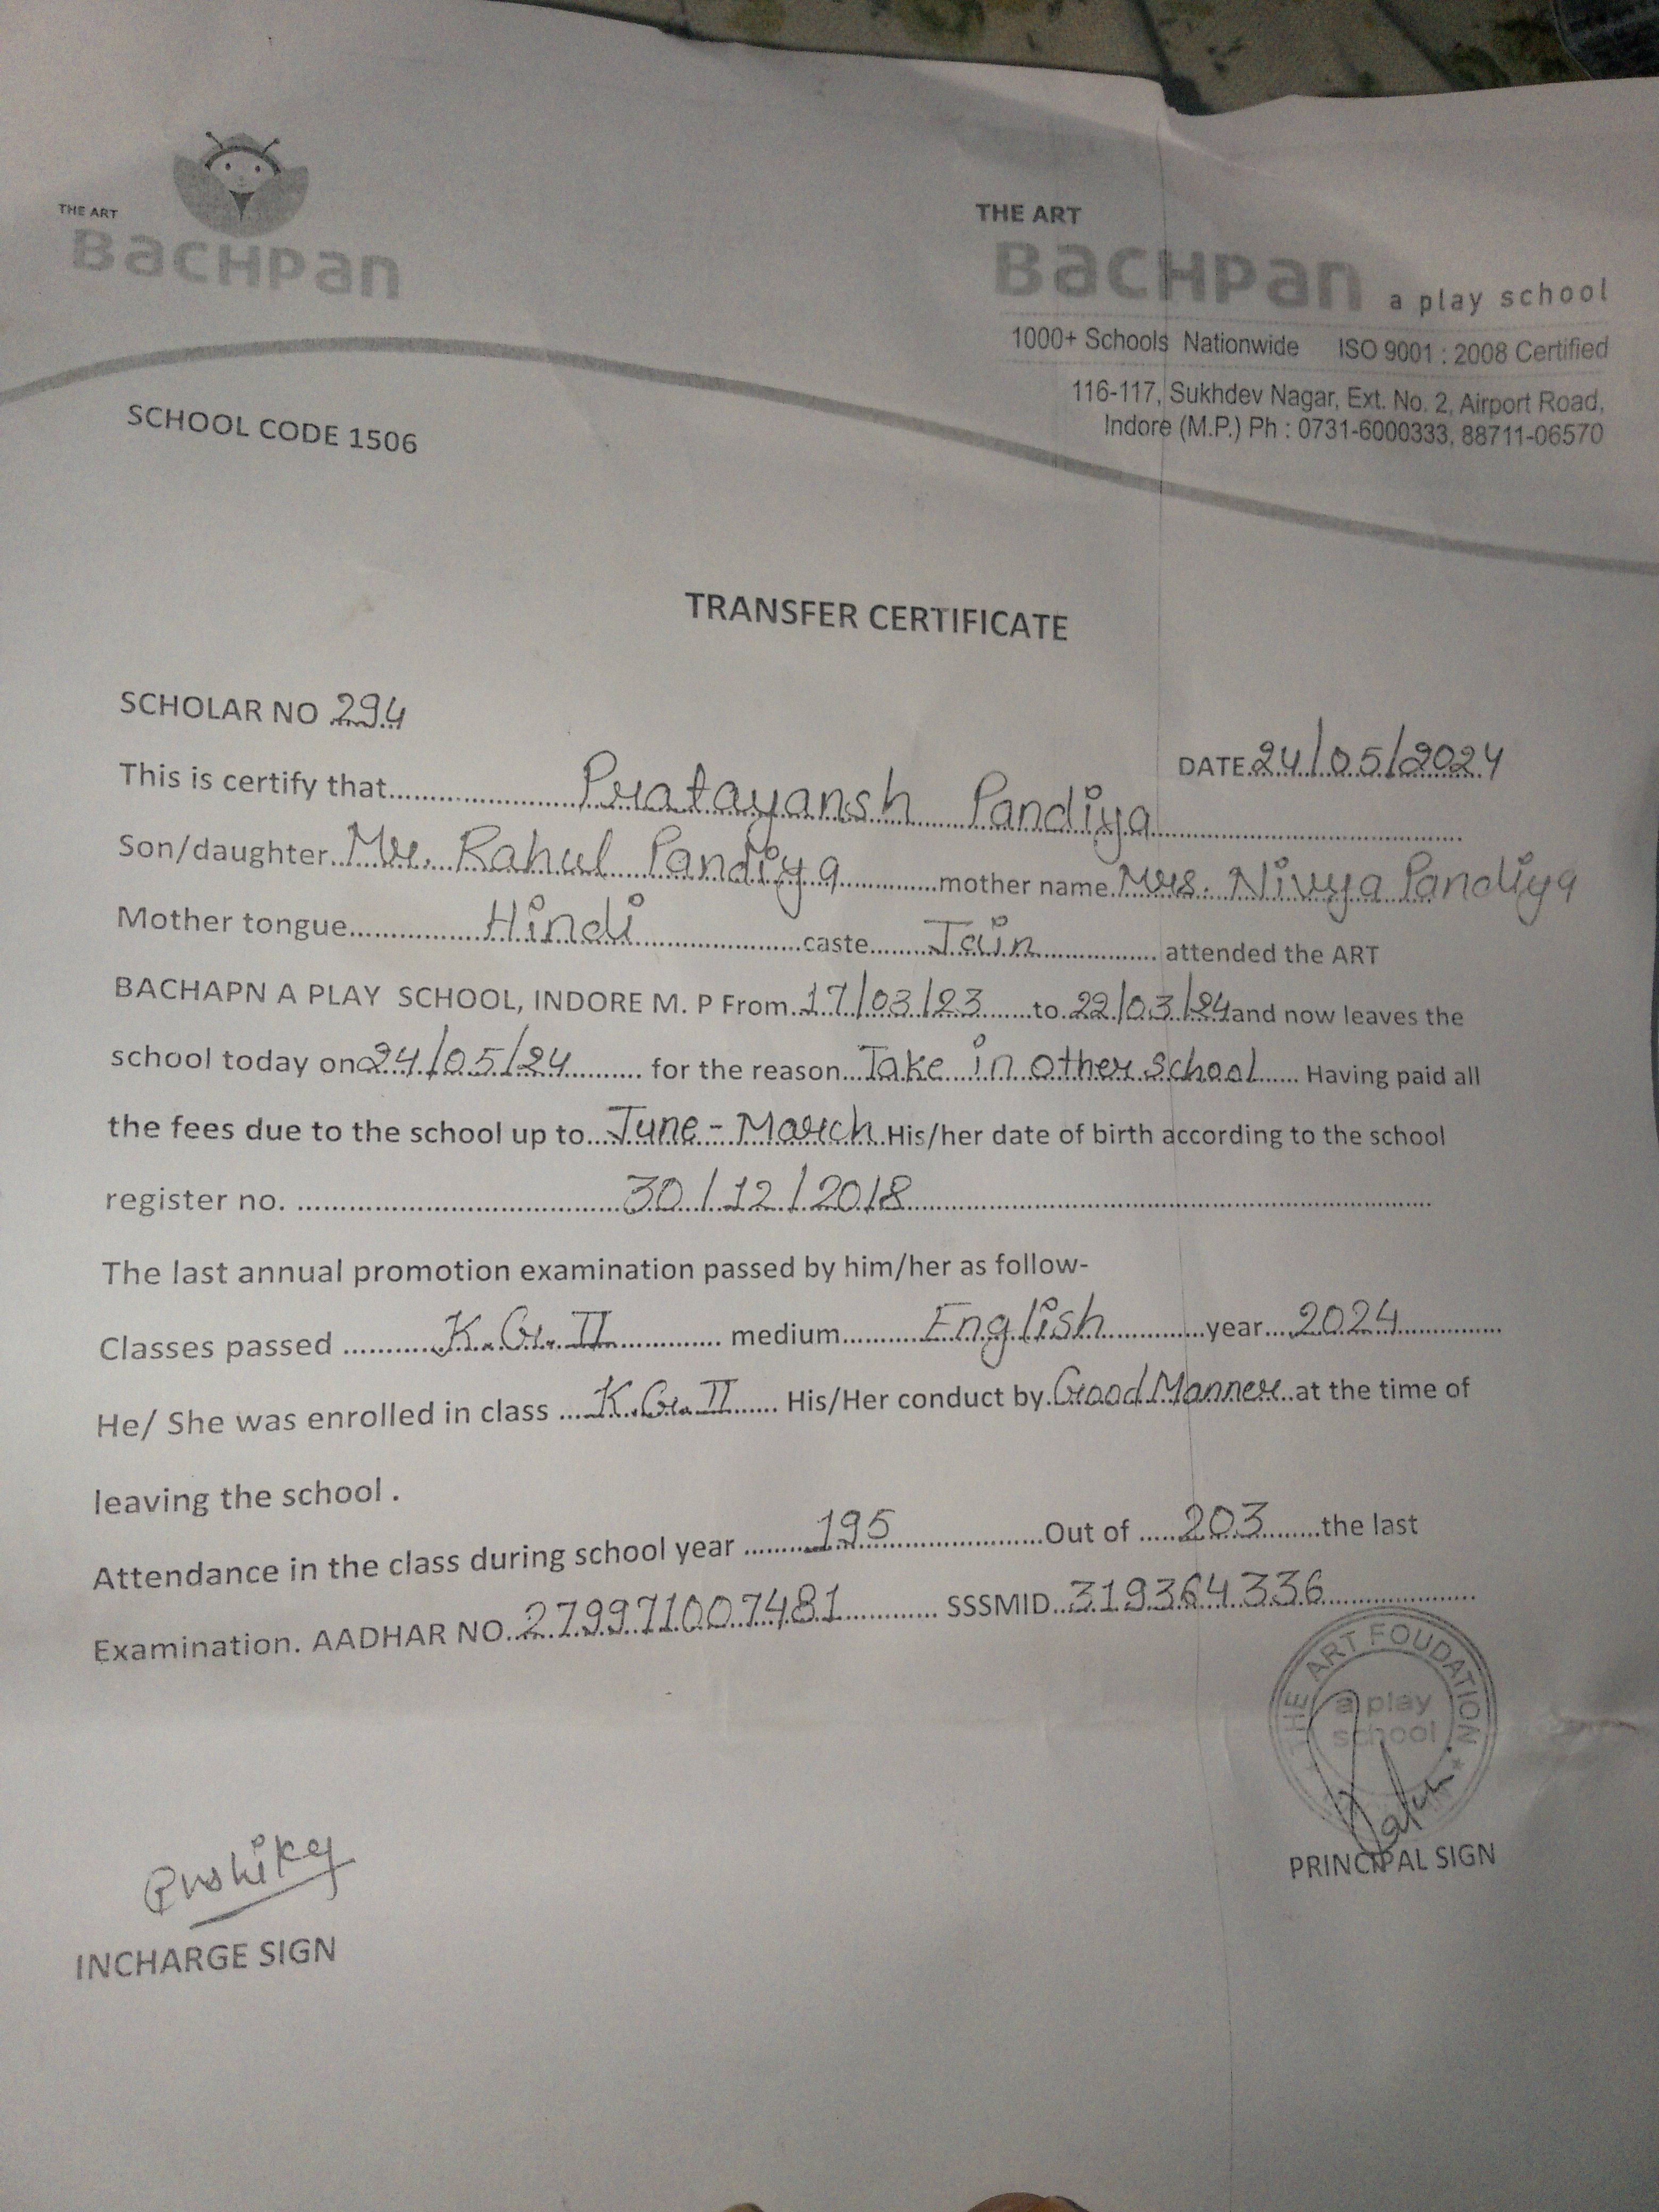 THE ART
BACHPAN
THE ART
BACHPAN a play school
1000+ Schools Nationwide ISO 9001 : 2008 Certified
116-117, Sukhdev Nagar, Ext. No. 2, Airport Road,
Indore (M.P.) Ph : 0731-6000333, 88711-06570
SCHOOL CODE 1506
TRANSFER CERTIFICATE
SCHOLAR NO 294
DATE 24/05/2024
This is certify that Pratayansh Pandiya
Son/daughter Mr. Rahul Pandiya mother name Mrs. Nivya Pandiya
Mother tongue Hindi caste Jain attended the ART
BACHAPN A PLAY SCHOOL, INDORE M. P From 17/03/23 to 22/03/24 and now leaves the
school today on 24/05/24 for the reason Take in other school Having paid all
the fees due to the school up to June - March His/her date of birth according to the school
register no. 30/12/2018
The last annual promotion examination passed by him/her as follow-
Classes passed K.G. II medium English year 2024
He/ She was enrolled in class K.G. II His/Her conduct by Good Manner at the time of
leaving the school .
Attendance in the class during school year 195 Out of 203 the last
Examination. AADHAR NO. 279971007481 SSSMID 319364336
THE ART FOUDATION
a play
school
PRINCIPAL SIGN
INCHARGE SIGN